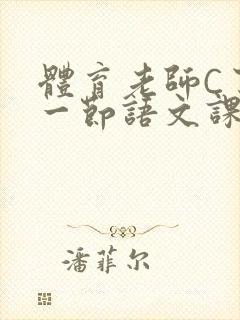 體育老師C
一節語文課
潘菲尔